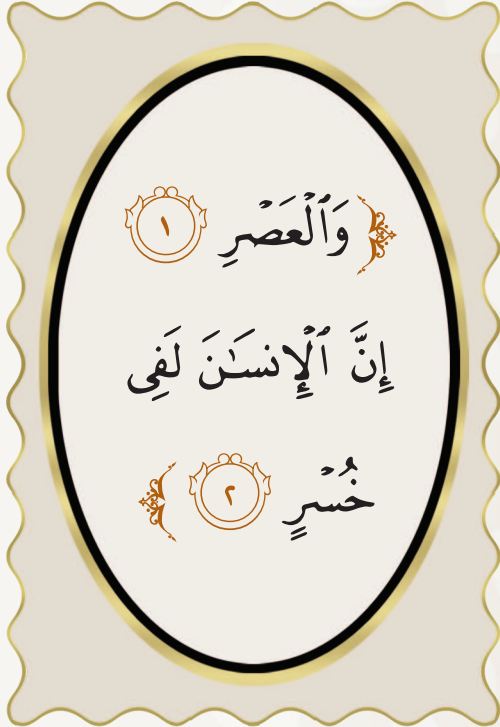 ﴿ وَٱلْعَصْرِ ١
إِنَّ ٱلْإِنسَـٰنَ لَفِى
خُسْرٍ ٢ ﴾